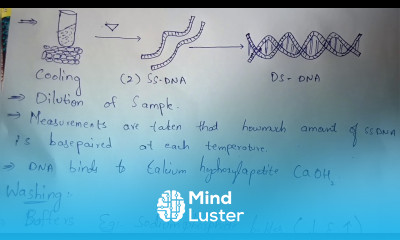 Cooling (2) SS-DNA DS-DNA
→ Dilution of Sample.
→ Measurements are taken that howmuch amount of SSDNA
is basepaired at each temperature.
→ DNA binds to Calcium hydroxylapatite CaOH2
Washing.
Buffers Eg:
Mind
Luster